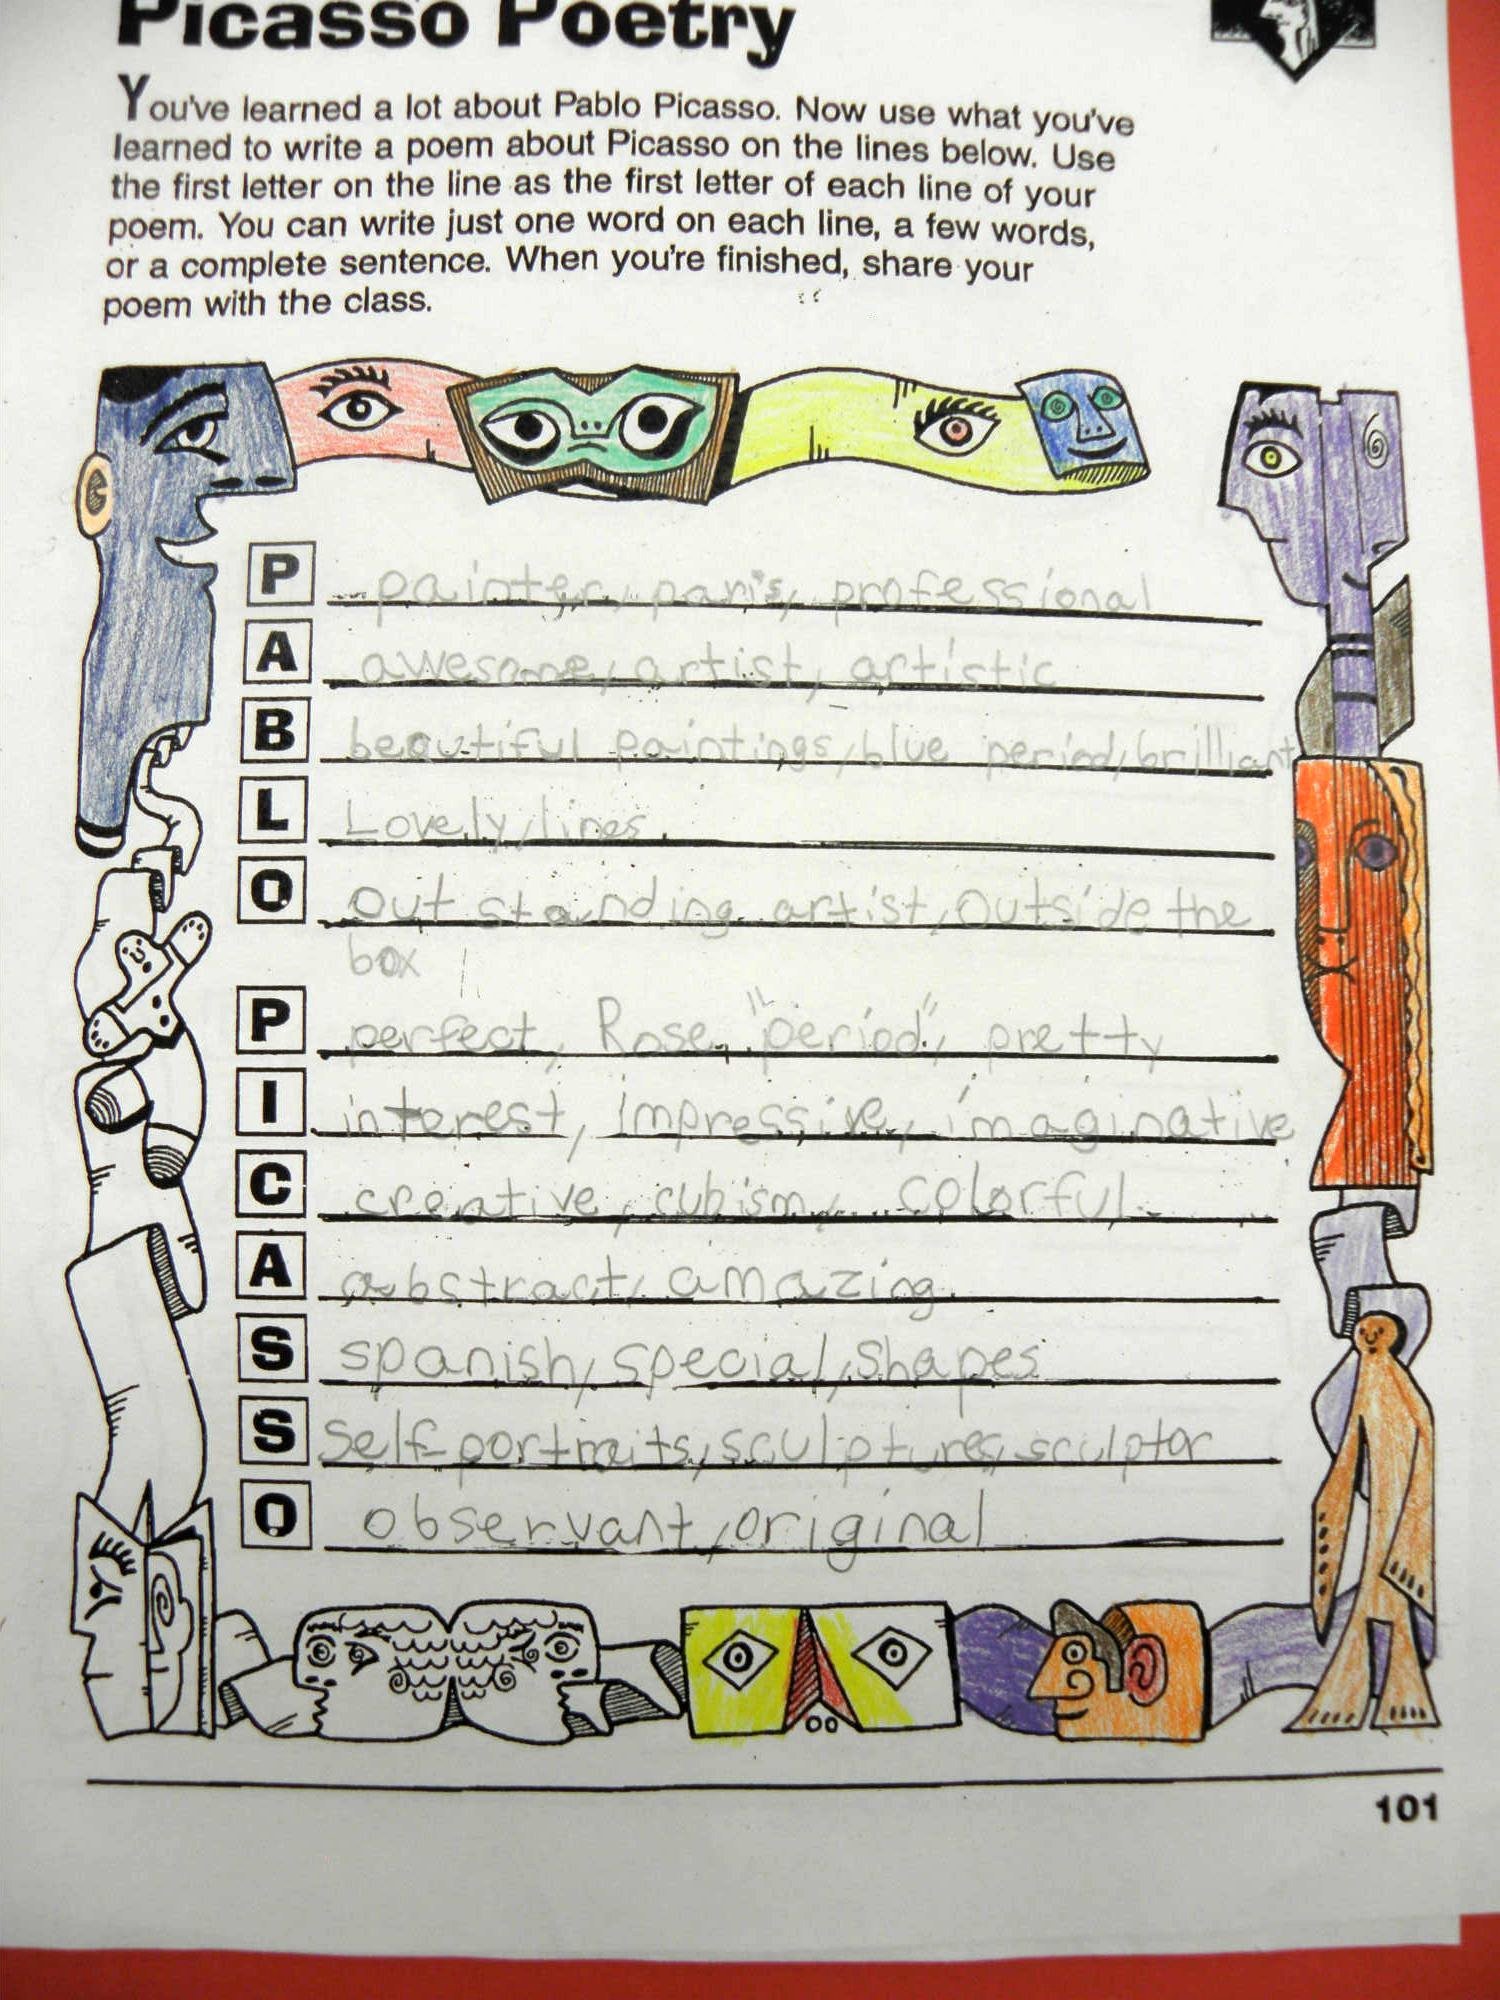 Picasso Poetry
You've learned a lot about Pablo Picasso. Now use what you've
learned to write a poem about Picasso on the lines below. Use
the first letter on the line as the first letter of each line of your
poem. You can write just one word on each line, a few words,
or a complete sentence. When you're finished, share your
poem with the class.
P painter, paris, professional
A awesome, artist, artistic
B beautiful paintings, blue period, brilliant
L Lovely, lines
O out standing artist, outside the
box
P perfect, Rose "period", pretty
I interest, impressive, imaginative
C creative, cubism, colorful
A abstract, amazing
S spanish, special, shapes
S self-portraits, sculptures, sculptor
O observant, original
101